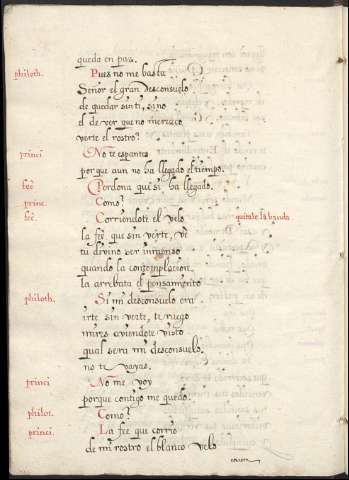 queda en paz.
philoth. Pues no me basta
Señor el gran desconsuelo
de quedar sin ti, sino
el de ver que no merezco
verte el rostro?
princi. No te espantes
porque aun no ha llegado el tiempo.
feē. Perdona que si ha llegado.
princ. Como?
feē. Corriendote el velo quitale la banda
la feē que sin verte, ve
tu divino ser inmenso
quando la contemplacion
la arrebata el pensamiento
philoth. Si mi desconsuelo era
irte sin verte, te ruego
mires aviendote visto
qual sera mi desconsuelo.
no te vayas.
princi No me voy
porque contigo me quedo.
philot. Como?
princi. La feē que corrio
de mi rostro el blanco velo